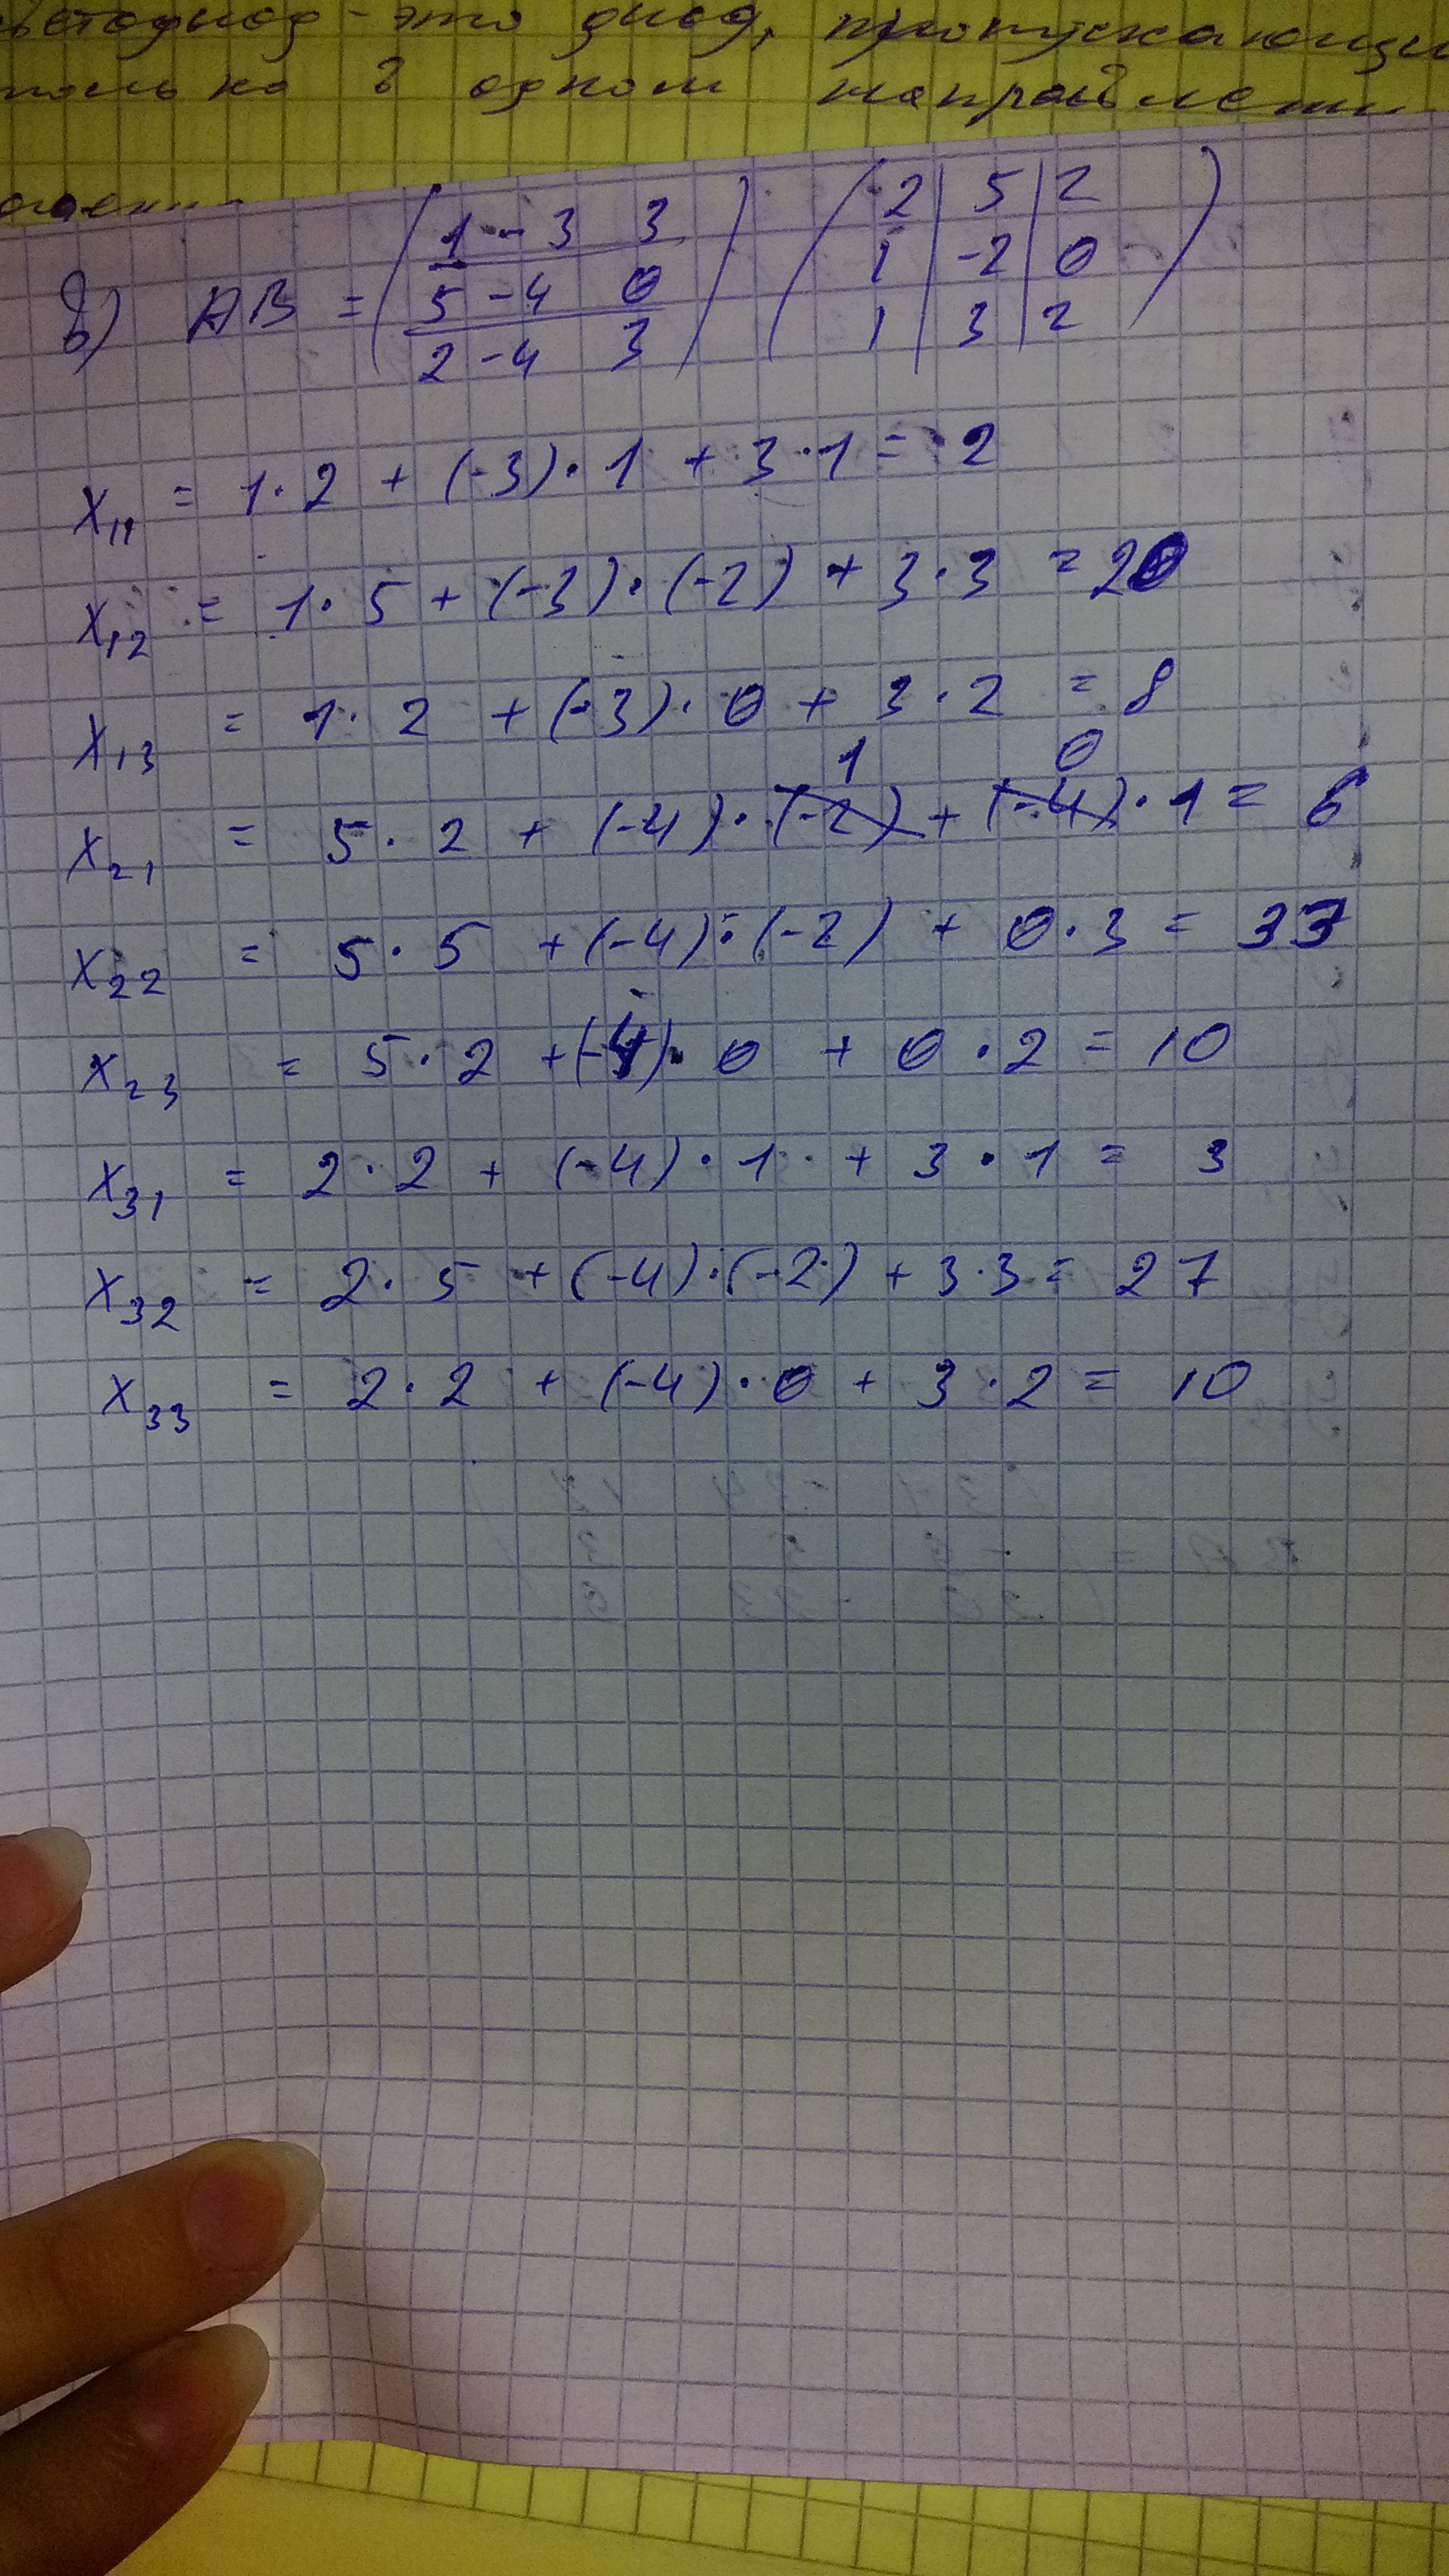 это диод, пропускающи
только в одном направлени
в) AB = ( 1 -3 3 ) ( 2 | 5 | 2 )
5 -4 0 1 | -2 | 0
2 -4 3 1 | 3 | 2
x₁₁ = 1·2 + (-3)·1 + 3·1 = 2
x₁₂ = 1·5 + (-3)·(-2) + 3·3 = 20
x₁₃ = 1·2 + (-3)·0 + 3·2 = 8
1 0
x₂₁ = 5·2 + (-4)·(-2) + (-4)·1 = 6
x₂₂ = 5·5 + (-4)·(-2) + 0·3 = 33
x₂₃ = 5·2 + (-4)·0 + 0·2 = 10
x₃₁ = 2·2 + (-4)·1 + 3·1 = 3
x₃₂ = 2·5 + (-4)·(-2) + 3·3 = 27
x₃₃ = 2·2 + (-4)·0 + 3·2 = 10